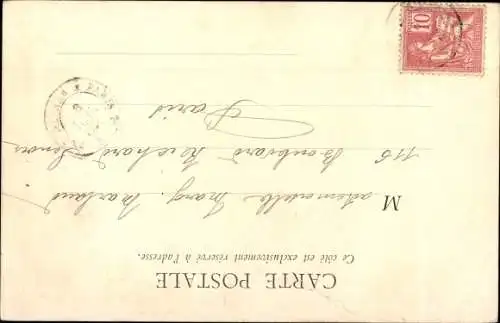 CARTE POSTALE
Ce côté est exclusivement réservé à l'adresse.
M ademoiselle Marg. Marlaud
116 Boulevard Richard Lenoir
Paris
PARIS
10